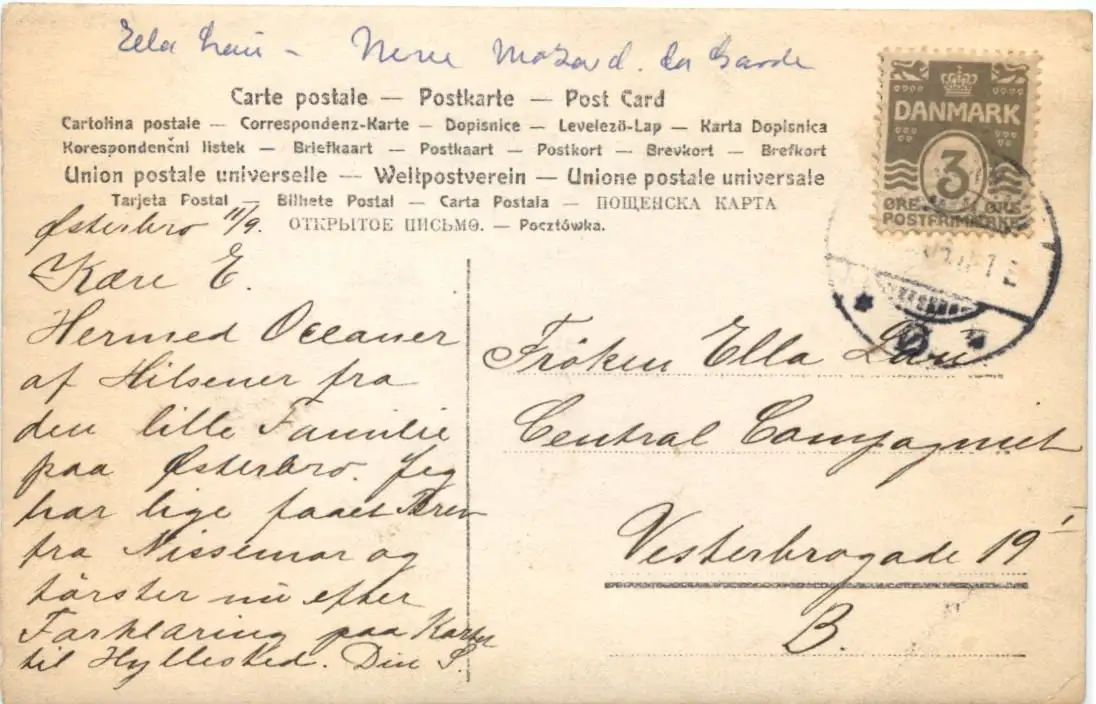 Ella Lau –
Carte postale — Postkarte — Post Card
Cartolina postale — Correspondenz-Karte — Dopisnice — Levelező-Lap — Karta Dopisnica
Korespondenční listek — Briefkaart — Postkaart — Postkort — Brevkort — Brefkort
Union postale universelle — Weltpostverein — Unione postale universale
Tarjeta Postal — Bilhete Postal — Carta Postala — ПОЩЕНСКА КАРТА
ОТКРЫТОЕ ПИСЬМО. — Pocztówka.
DANMARK
3
ØRE ØRE
POSTFRIMÆRKE
Østerbro 11/9.
Kære E.
Hermed Oceaner
af Hilsener fra
den lille Familie
paa Østerbro. Jeg
har lige faaet Brev
fra Nissemor og
tørster nu efter
Forklaring paa Kortet
til Hyllested. Din S.
Fröken Ella Lau
Central Compagniet
Vesterbrogade 19¹
B.